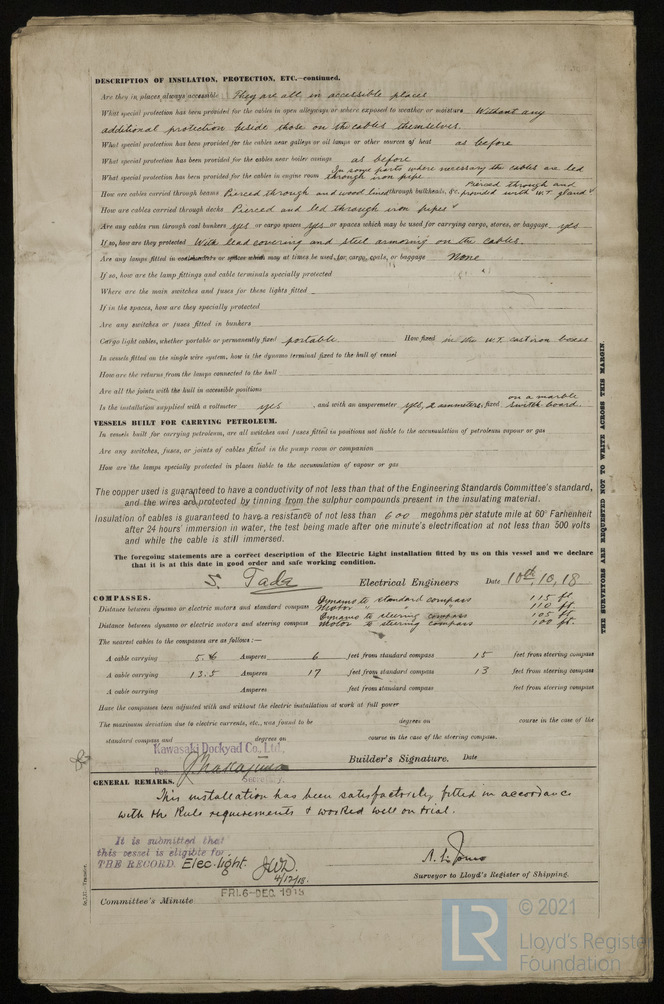 DESCRIPTION OF INSULATION, PROTECTION, ETC.—continued.
Are they in places always accessible They are all in accessible places
What special protection has been provided for the cables in open alleyways or where exposed to weather or moisture Without any
additional protection beside those on the cables themselves.
What special protection has been provided for the cables near galleys or oil lamps or other sources of heat as before
What special protection has been provided for the cables near boiler casings as before
What special protection has been provided for the cables in engine room In some parts where necessary the cables are led through iron pipe.
How are cables carried through beams Pierced through and wood lined through bulkheads, &c. Pierced through and provided with W.T. gland
How are cables carried through decks Pierced and led through iron pipes
Are any cables run through coal bunkers yes or cargo spaces yes or spaces which may be used for carrying cargo, stores, or baggage yes
If so, how are they protected With lead covering and steel armoring on the cables.
Are any lamps fitted in coal bunkers or spaces which may at times be used for cargo, coals, or baggage None
If so, how are the lamp fittings and cable terminals specially protected
Where are the main switches and fuses for these lights fitted
If in the spaces, how are they specially protected
Are any switches or fuses fitted in bunkers
Cargo light cables, whether portable or permanently fixed portable How fixed in the W.T. cast iron boxes
In vessels fitted on the single wire system, how is the dynamo terminal fixed to the hull of vessel
How are the returns from the lamps connected to the hull
Are all the joints with the hull in accessible positions
Is the installation supplied with a voltmeter yes, and with an amperemeter yes, 2 ammeters, fixed on a marble switch board.
VESSELS BUILT FOR CARRYING PETROLEUM.
In vessels built for carrying petroleum, are all switches and fuses fitted in positions not liable to the accumulation of petroleum vapour or gas
Are any switches, fuses, or joints of cables fitted in the pump room or companion
How are the lamps specially protected in places liable to the accumulation of vapour or gas
The copper used is guaranteed to have a conductivity of not less than that of the Engineering Standards Committee's standard,
and the wires are protected by tinning from the sulphur compounds present in the insulating material.
Insulation of cables is guaranteed to have a resistance of not less than 600 megohms per statute mile at 60° Farhenheit
after 24 hours' immersion in water, the test being made after one minute's electrification at not less than 500 volts
and while the cable is still immersed.
The foregoing statements are a correct description of the Electric Light installation fitted by us on this vessel and we declare
that it is at this date in good order and safe working condition.
S. Tada Electrical Engineers Date 10th, 10, 18
COMPASSES.
Distance between dynamo or electric motors and standard compass Dynamo to standard compass 115 ft.
Motor " 110 ft.
Distance between dynamo or electric motors and steering compass Dynamo to steering compass 105 ft.
Motor to steering compass 100 ft.
The nearest cables to the compasses are as follows:—
A cable carrying 5.6 Amperes 6 feet from standard compass 15 feet from steering compass
A cable carrying 13.5 Amperes 17 feet from standard compass 13 feet from steering compass
A cable carrying Amperes feet from standard compass feet from steering compass
Have the compasses been adjusted with and without the electric installation at work at full power
The maximum deviation due to electric currents, etc., was found to be degrees on course in the case of the
standard compass and degrees on course in the case of the steering compass.
Kawasaki Dockyad Co., Ltd.,
Per J. Nakajima Secretary. Builder's Signature. Date
GENERAL REMARKS.
This installation has been satisfactorily fitted in accordance
with the Rule requirements & worked well on trial.
It is submitted that
this vessel is eligible for
THE RECORD. Elec. light. JWD.
4/12/18.
A. L. Jones
Surveyor to Lloyd's Register of Shipping.
FRI. 6-DEC. 1918
Committee's Minute
THE SURVEYORS ARE REQUESTED NOT TO WRITE ACROSS THIS MARGIN.
© 2021
LR
Lloyd's Register
Foundation